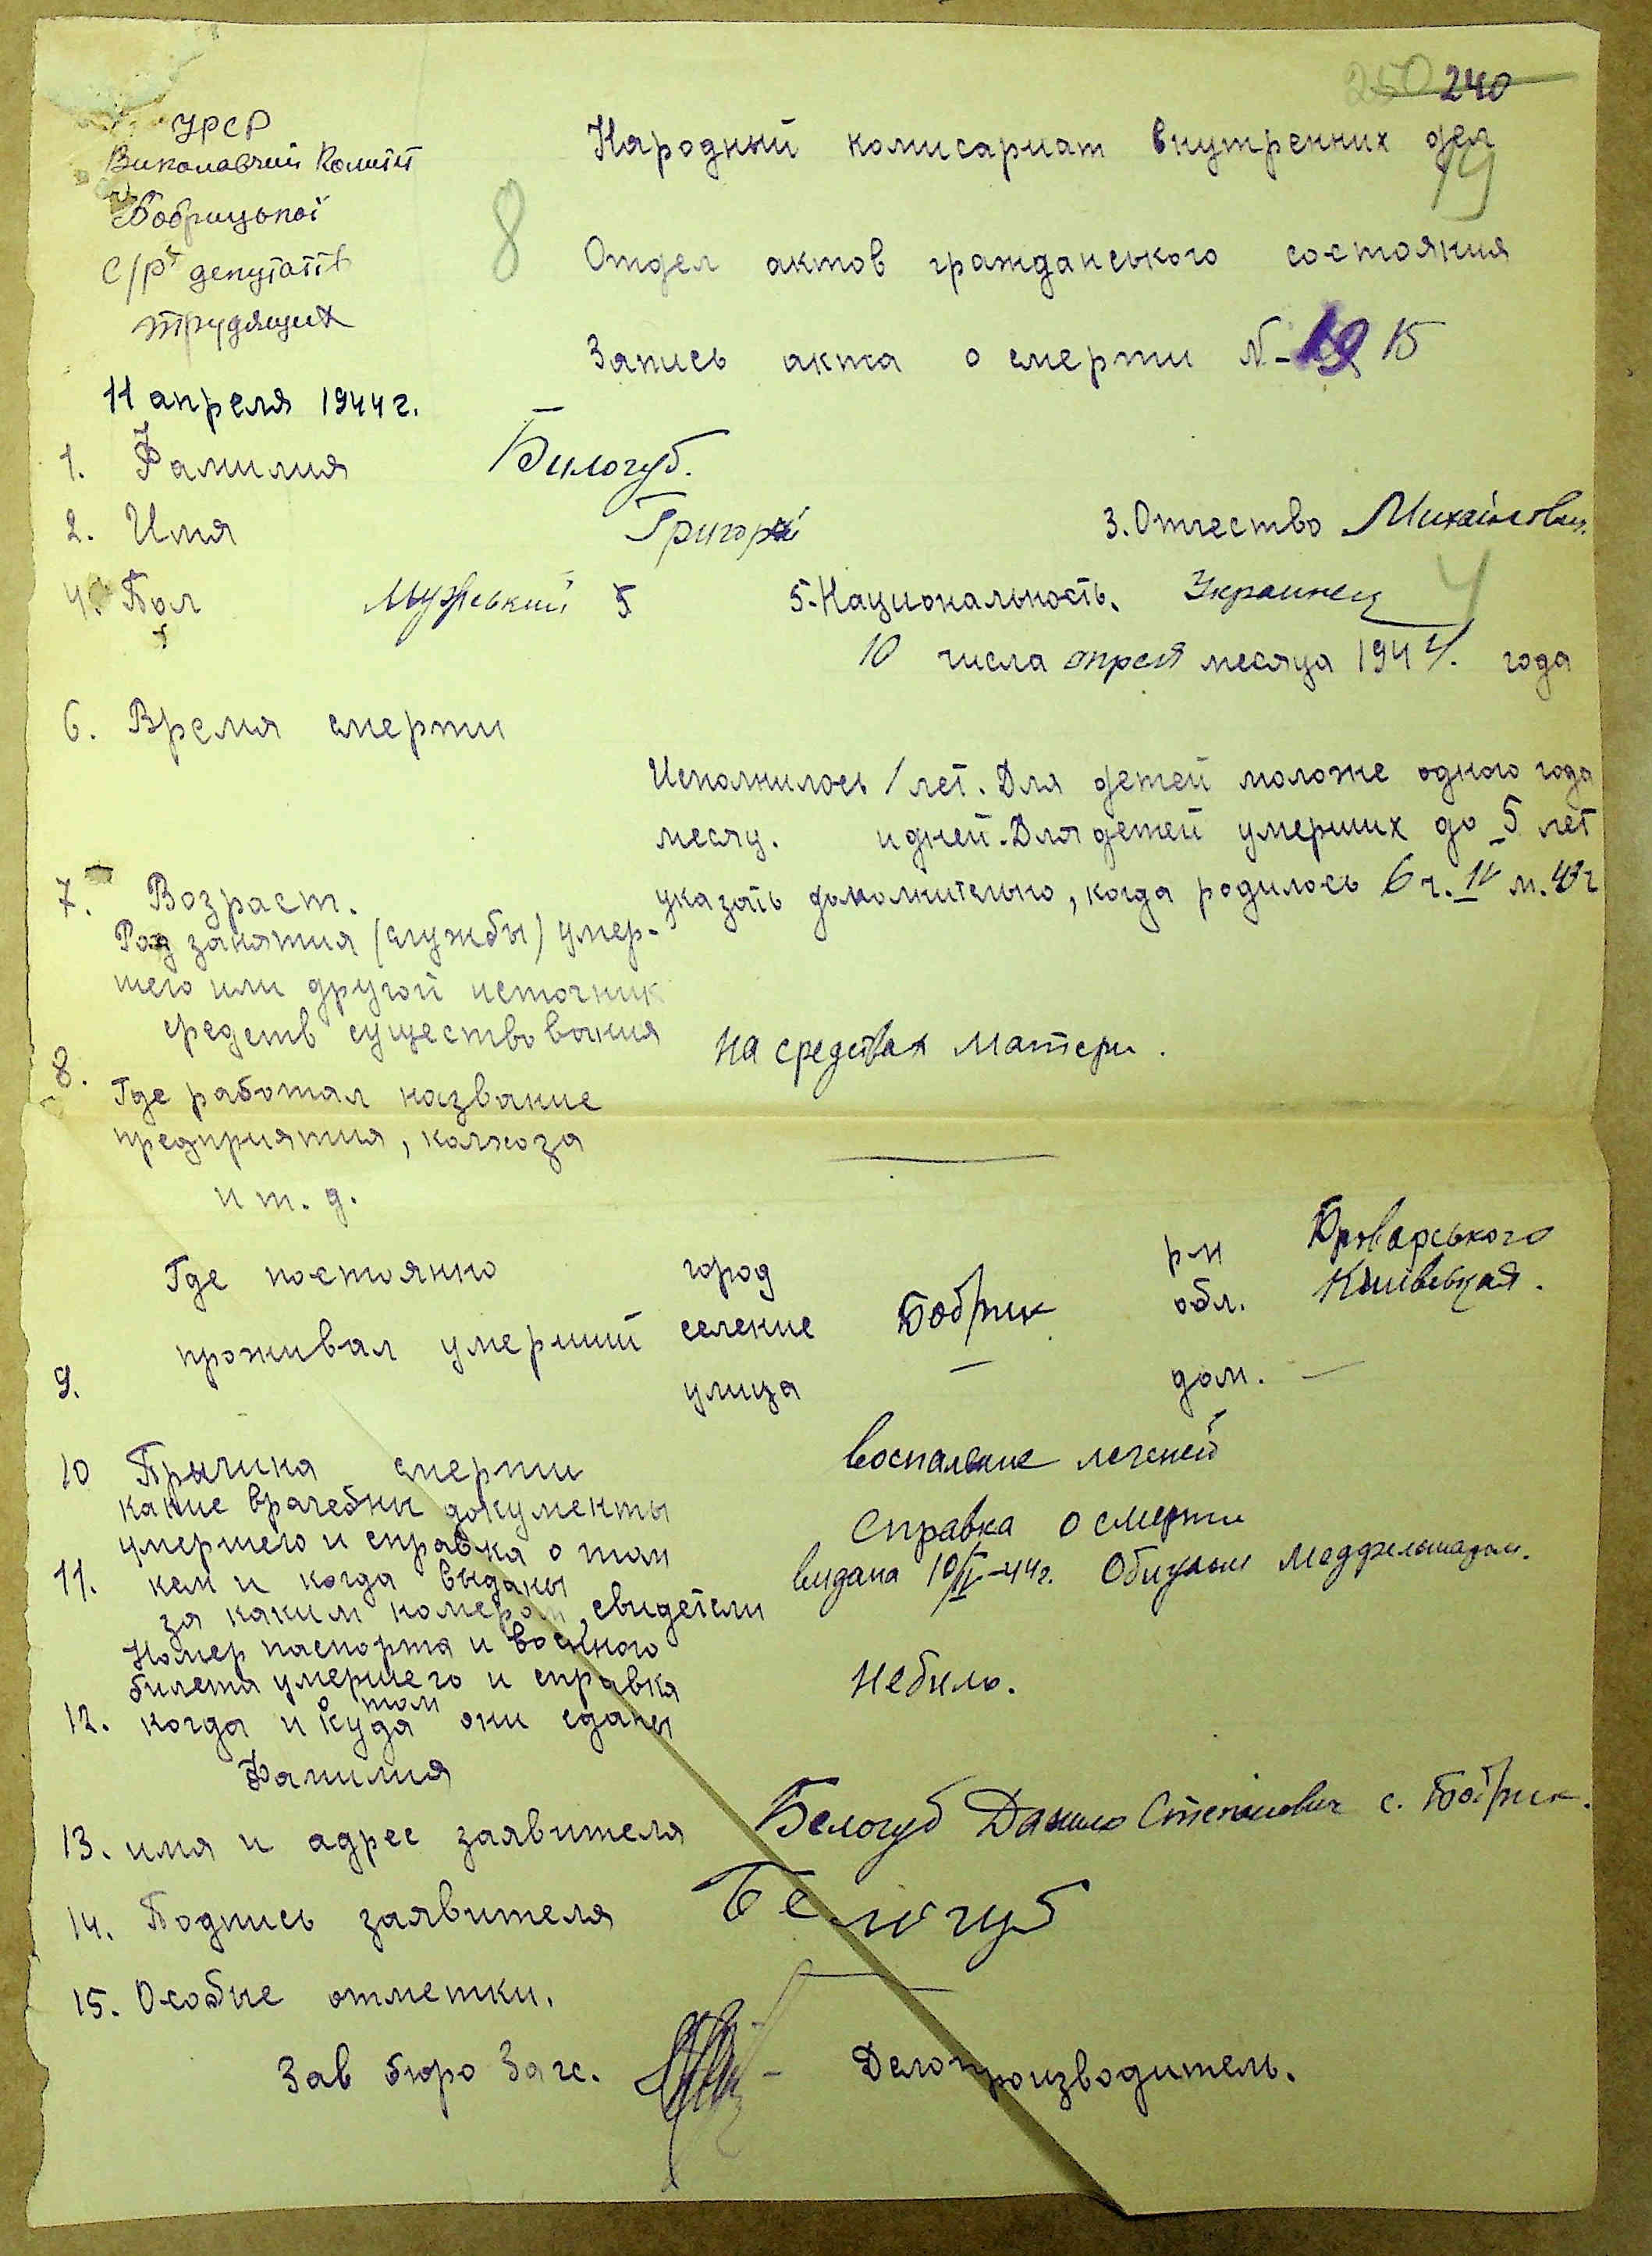 250 240
УРСР
Виконавчий Комітет
Бобрицької
С/Р депутатів
трудящих
Народный комисариат внутренних дел
19
8
Отдел актов гражданського состояния
Запись акта о смерти №-19 15
11 апреля 1944 г.
1. Фамилия Билогуб.
2. Имя Григорий 3. Отчество Михайлович.
4. Пол Мужський 5 5. Национальность. Украинец 4
10 числа апреля месяца 1944. года
6. Время смерти
Исполнилось 1 лет. Для детей моложе одного года
месяц. и дней. Для детей умерших до 5 лет
7. Возраст. указать дополнительно, когда родилось 6 ч. IV м. 43 г
Род занятия (службы) умер-
шего или другой источник
средств существования на средствах матери.
8.
Где работал название
предприятия, колхоза
и т. д.
Где постоянно город р-н Броварського
проживал умерший селение Бобрик обл. Київська.
9. улица — дом. —
10 Причина смерти воспаление легеней
какие врачебни документы
умершего и справка о том Справка о смерти
11. кем и когда выданы видана 10/IV-44 г. Медфельшаром.
за каким номером свидетели
Номер паспорта и военного
билета умершего и справка небило.
о том
12. когда и куда они сданы
Фамилия
13. имя и адрес заявителя Белогуб Данило Степанович с. Бобрик.
14. Подпись заявителя Белогуб
15. Особые отметки.
Зав бюро Загс. Делопроизводитель.